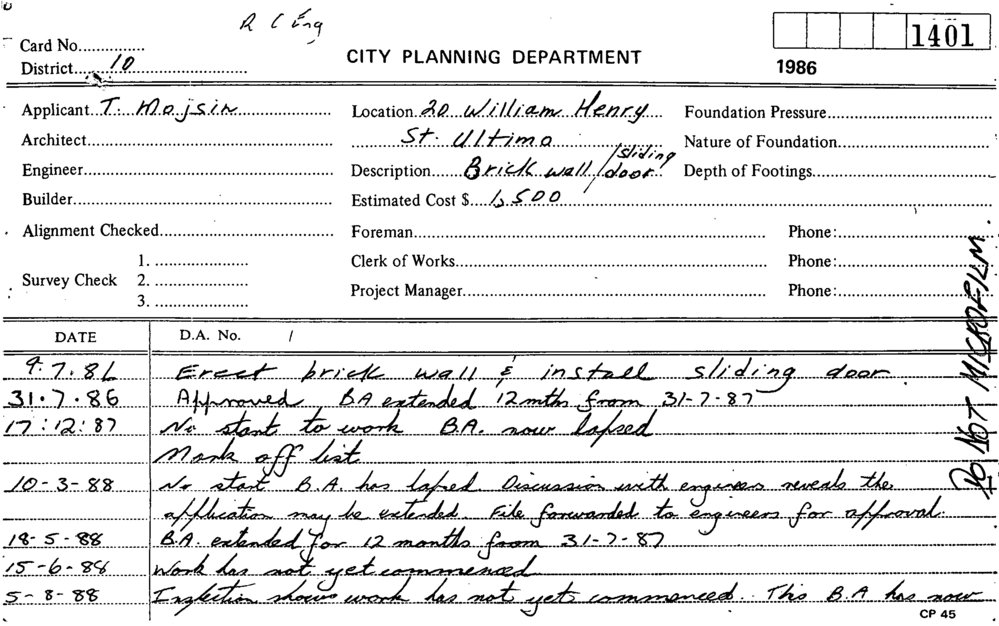 R C Eng
Card No...............
1401
District....10
CITY PLANNING DEPARTMENT
1986
Applicant..T. Mojsin
Location..20 William Henry
Foundation Pressure
Architect
St. Ultimo
Nature of Foundation
/sliding
Engineer
Description Brick wall/door
Depth of Footings
Builder
Estimated Cost $....1,500
Alignment Checked
Foreman
Phone:
1.
Clerk of Works
Phone:
Survey Check 2.
Project Manager
Phone:
3.
DO NOT MICROFILM
DATE
D.A. No. /
9.7.86 Erect brick wall & install sliding door
31.7.86 Approved BA extended 12mths from 31-7-87
17:12:87 No start to work B.A. now lapsed
Mark off list
10-3-88 No start B.A. has lapsed. Discussion with engineers reveals the
application may be extended. File forwarded to engineers for approval.
18-5-88 B.A. extended for 12 months from 31-7-87
15-6-88 Work has not yet commenced
5-8-88 Inspection shows work has not yet commenced. This B.A has now
CP 45